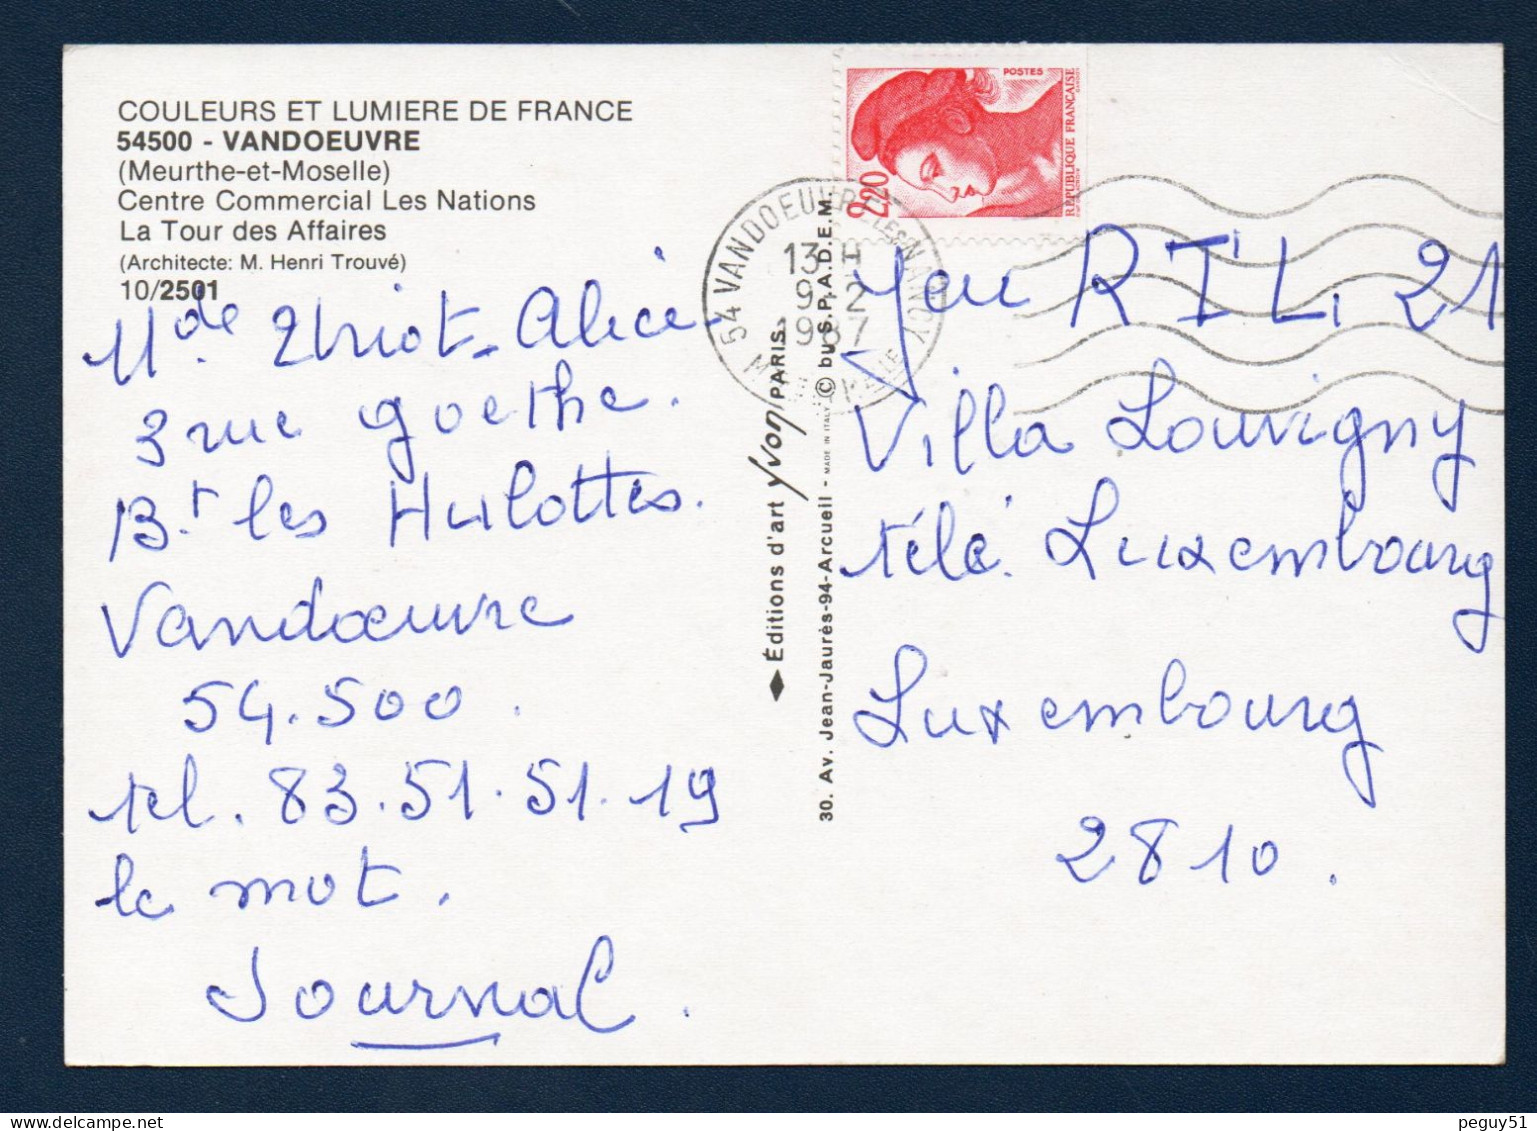 COULEURS ET LUMIERE DE FRANCE
54500 - VANDOEUVRE
(Meurthe-et-Moselle)
Centre Commercial Les Nations
La Tour des Affaires
(Architecte: M. Henri Trouvé)
10/2501
Mde. Thriot. Alice.
3 rue goethe.
B.t les Hulottes.
Vandœuvre
54.500.
tel. 83.51.51.19
le mot.
Journal.
Éditions d'art Yvon PARIS.
30. Av. Jean-Jaurès-94-Arcueil - MADE IN ITALY © bu S.P.A.D.E.M.
POSTES
2,20
REPUBLIQUE FRANÇAISE
54 VANDOEUVRE LES NANCY
13 H
9-2
1987
Jeu RTL, 21
Villa Louvigny
télé. Luxembourg
Luxembourg
2810.
peguy51